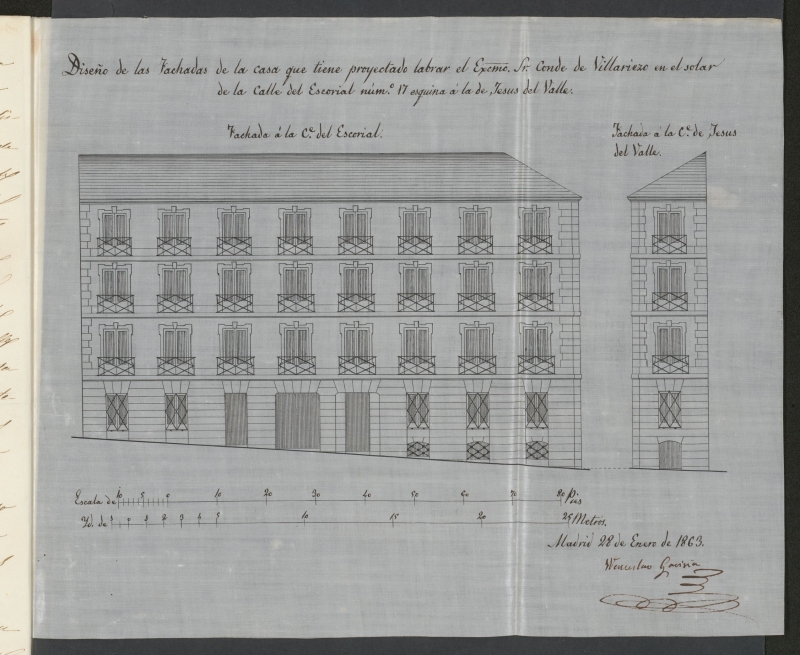 Diseño de las Fachadas de la casa que tiene proyectado labrar el Excmo. Sr. Conde de Villariezo en el solar
de la Calle del Escorial núm.º 17 esquina á la de Jesus del Valle.
Fachada á la C.e del Escorial.
Fachada á la C.e de Jesus
del Valle.
Escala de 10 5 0 10 20 30 40 50 60 70 80 Pies
Yd. de 1 2 3 4 5 10 15 20 25 Metros.
Madrid 28 de Enero de 1863.
Wenceslao Gaviria